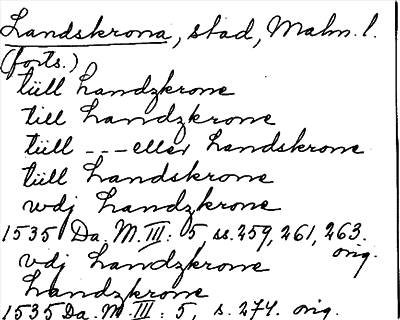 Landskrona, stad, Malm. l.
(forts.)
tüll Handzkrone
till Handzkrone
tüll --- eller Handskrone
tüll Handskrone
wdj Handzkrone
1535 Da. M. III: 5, ss. 259, 261, 263.
orig.
vdj Handzkrone
Handzkrone
1535 Da. M. III: 5, s. 274. orig.